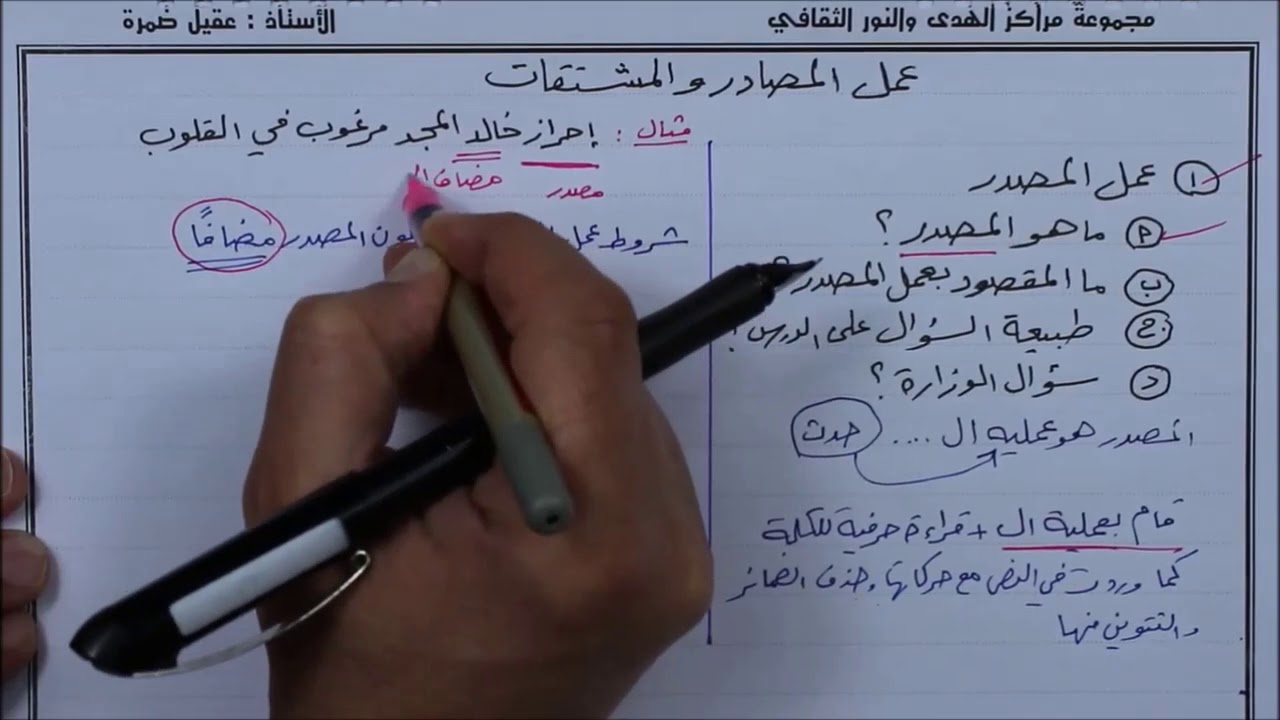 مجموعة مراكز الهدى والنور الثقافي
الأستاذ : عقيل ضمرة
عمل المصادر والمشتقات
١ عمل المصدر
م ما هو المصدر ؟
ب ما المقصود بعمل المصدر ؟
ج طبيعة السؤال على الدرس !
د سؤال الوزارة ؟
المصدر هو عملية ال .... حدث
قام بعملية ال + قراءة حرفية للكلمة
كما وردت في النص مع حركاتها وحذف الضمائر
والتنوين منها
مثال : إحراز خالد المجد مرغوب في القلوب
مصدر مضاف
شروط عمل المصدر مضافًا